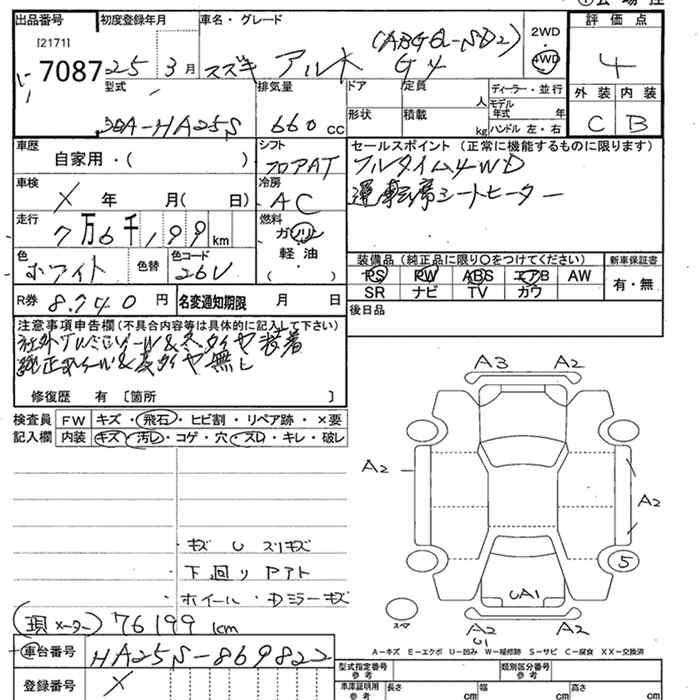 出品番号 初度登録年月 車名・グレード 評価点
[2171]
7087 25年 3月 スズキ アルト G4 (ABGEL-ND2) 2WD 4WD 4
型式 排気量 ドア 定員 人 ディーラー・並行 外装 内装
HA25S 660cc 形状 積載 kg モデル年式 年 ハンドル 左・右 C B
車歴 自家用・( ) シフト フロアAT セールスポイント(正常に機能するものに限ります)
フルタイム4WD
車検 X 年 月( 日) 冷房 AC 運転席シートヒーター
走行 7万6千199km 燃料 ガソリン
軽油
( )
色 ホワイト 色替 色コード 26U 装備品(純正品に限り○をつけてください) 新車保証書
PS PW ABS エアB AW 有・無
SR ナビ TV カワ
R券 8.740円 名変通知期限 月 日 後日品
注意事項申告欄(不具合内容等は具体的に記入して下さい)
社外アルミホイール&冬タイヤ装着
純正ホイール&夏タイヤ無し
修復歴 有 〔箇所 〕
検査員 FW キズ・飛石・ヒビ割・リペア跡・×要
記入欄 内装 キズ・汚レ・コゲ・穴・スレ・キレ・破レ
A3 A2
A2
A2
5
・キズ U スリキズ
・下回りアト
・ホイール・ドミラーキズ
UA1
スペア
A2 A2
U1
(現メーター) 76199km
A−キズ E−エクボ U−凹み W−補修跡 S−サビ C−腐食 XX−交換済
車台番号 HA25S-869822
型式指定番号 参考 類別区分番号 参考
登録番号 X
車庫証明用 参考 長さ cm 幅 cm 高さ cm